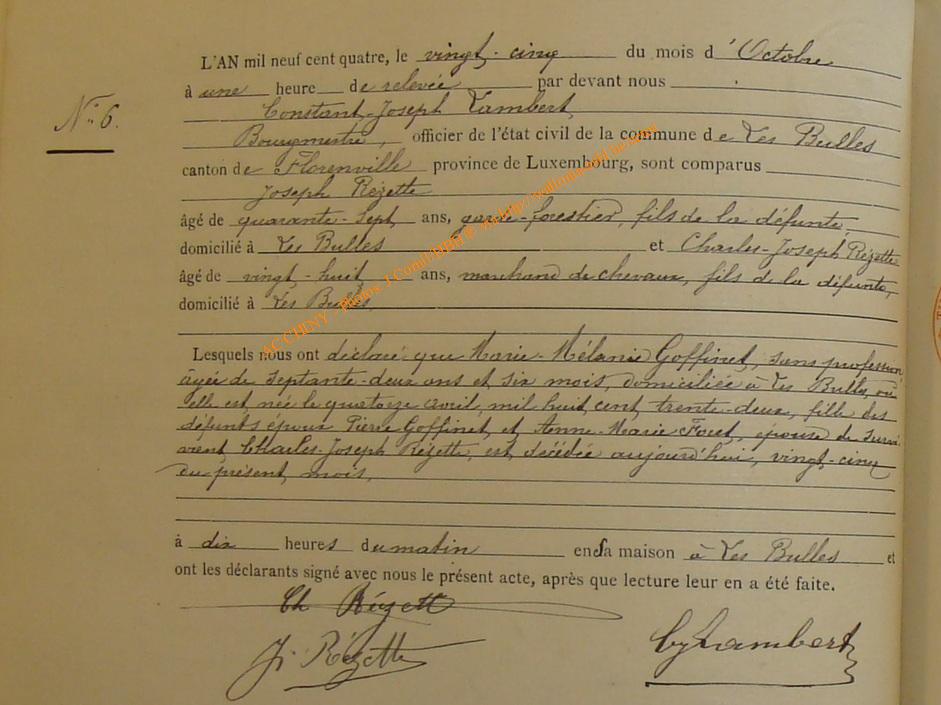 L'AN mil neuf cent quatre, le vingt-cinq du mois d'Octobre
à une heure de relevée par devant nous
N° 6.
Constant-Joseph Lambert
Bourgmestre, officier de l'état civil de la commune de Les Bulles
canton de Florenville province de Luxembourg, sont comparus
Joseph Rézette
âgé de quarante-sept ans, garde-forestier, fils de la défunte,
domicilié à Les Bulles et Charles-Joseph Rézette
âgé de vingt-huit ans, marchand de chevaux, fils de la défunte,
domicilié à Les Bulles,
AC CHINY - photos J.Comblen
Lesquels nous ont déclaré que Marie-Mélanie Goffinet, sans profession
âgée de septante-deux ans et six mois, domiciliée à Les Bulles, où
elle est née le quatorze avril mil huit cent trente-deux, fille des
défunts époux Pierre Goffinet, et Anne-Marie épouse de survi
vant Charles-Joseph Rézette, est décédée aujourd'hui, vingt-cinq
du présent mois,
à dix heures du matin en sa maison à Les Bulles et
ont les déclarants signé avec nous le présent acte, après que lecture leur en a été faite.
Ch Rézette
J. Rézette
Lambert